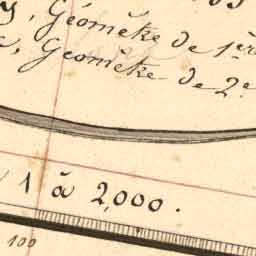 Géomètre de 1er
Géomètre de 2e
1 à 2,000.
100